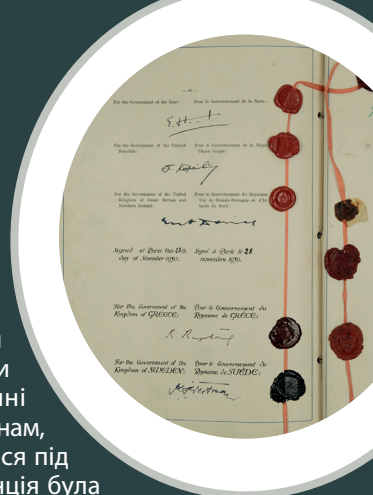 — 19 —
For the Government of the Saar:
Pour le Gouvernement de la Sarre:
For the Government of the Turkish
Republic:
Pour le Gouvernement de la
For the Government of the United
Kingdom of Great Britain and
Northern Ireland:
Pour le Gouvernement du Royaume
Uni de Grande-Bretagne et d'Ir-
lande du Nord:
Signed at Paris this 28th
day of November 1950.
Signé à Paris le 28
novembre 1950.
For the Government of the
Kingdom of GREECE:
Pour le Gouvernement du
Royaume de GRÈCE:
For the Government of the
Kingdom of SWEDEN:
Pour le Gouvernement du
Royaume de SUÈDE:
и
нам,
ся під
нція була